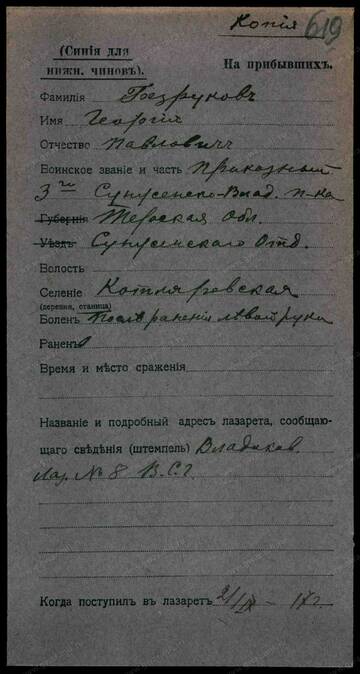 Копія
619
(Синія для
нижн. чиновъ).
На прибывшихъ.
Фамилія Безруковъ
Имя Георгій
Отчество Павловичъ
Воинское званіе и часть Приказный
3го Сунженско-Влад. п-ка
Губернія Терская Обл.
Уѣздъ Сунженскаго Отд.
Волость
Селеніе Котляревская
(деревня, станица)
Боленъ Послѣ раненія лѣвой руки
Раненъ
Время и мѣсто сраженія
Названіе и подробный адресъ лазарета, сообщаю-
щаго свѣдѣнія (штемпель) Владикав.
Лаз. № 8 В.С.Г.
Когда поступилъ въ лазаретъ 2/IX - 17 г.